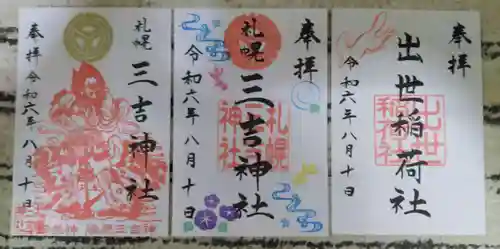 札幌
三吉神社
奉拝 令和六年 八月 十日
三吉神社
奉拝
札幌
三吉神社
令和六年 八月 十日
札幌
三吉
神社
奉拝
出世稲荷社
令和六年 八月 十日
出世
稲荷社